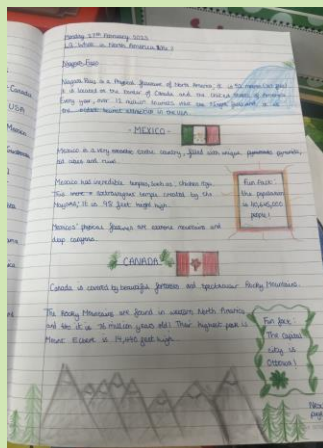 Monday 27th February 2023
L.O: What is North America like?
Niagara Falls
Niagara Falls is a Physical feauture of North America, it is 52 metres (167 feet)
it is located on the border of Canada and the United States of America.
Every year, over 12 million tourists visit the Niagara falls and it is
the oldest tourist attraction in the USA.
- MEXICO -
Mexico is a very exotic country, filled with unique pyramids,
old caves and ruins.
Mexico has incredible temples, such as: Chichen Itza.
This extravagous temple created by the
Mayans, it is 98 feet high.
Fun fact:
The population
is
people!
Mexicos' physical features are extreme mountains and
deep canyons.
CANADA
Canada is covered by beautiful forests and spectacular Rocky Mountains.
The Rocky Mountains are found in western North America
and it is 76 million years old! Their highest peak is
Mount Elbert is 14,440 feet high.
Fun fact:
The capital
city is
Ottawa!
-Canada
USA
Mexico